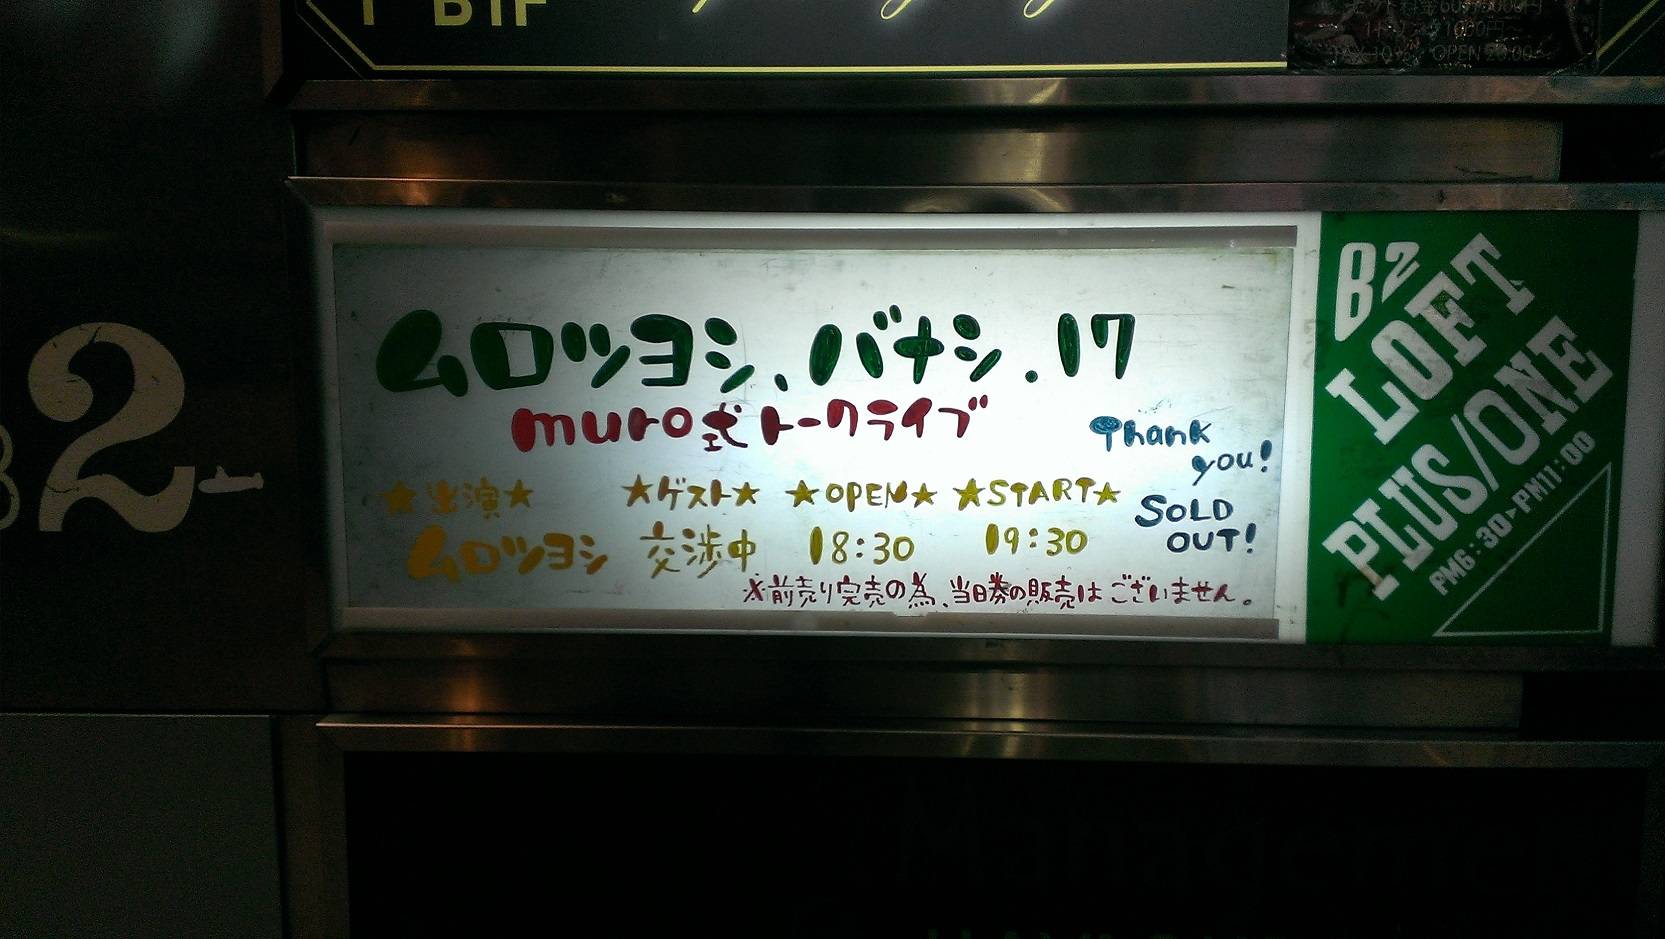 B1F
1ドリンク1000円~
TAX 10% OPEN 20:00~
ムロツヨシ、バナシ.17
muro式トークライブ
Thank
you!
★出演★ ★ゲスト★ ★OPEN★ ★START★
ムロツヨシ 交渉中 18:30 19:30
SOLD
OUT!
※前売り完売の為、当日券の販売はございません。
B2
LOFT
PLUS/ONE
PM6:30▶PM11:00
2
Management